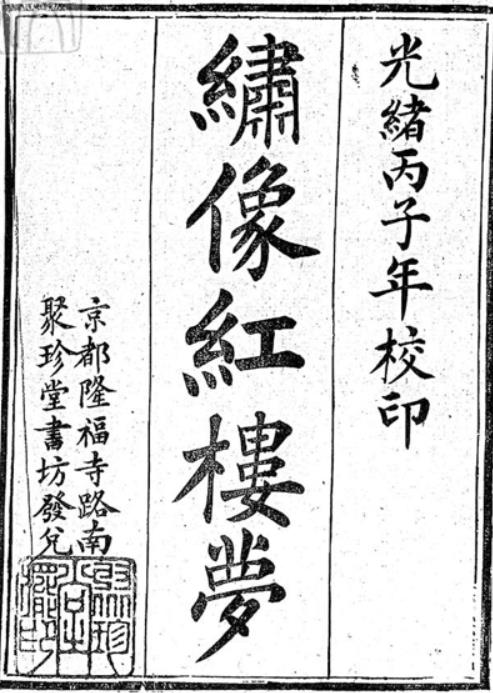 光緒丙子年校印
繡像紅樓夢
京都隆福寺路南
聚珍堂書坊發兌